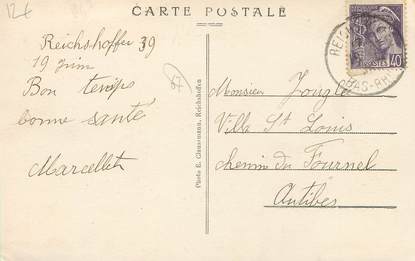 12€
CARTE POSTALE
Reichshoffen 39
19 Juin
Bon temps
bonne santé
Marcellet
67
Photo E. Clausmann, Reichshoffen
POSTES 40
BAS-RHIN
Monsieur Jougla
Villa St Louis
chemin du Fournel
Antibes